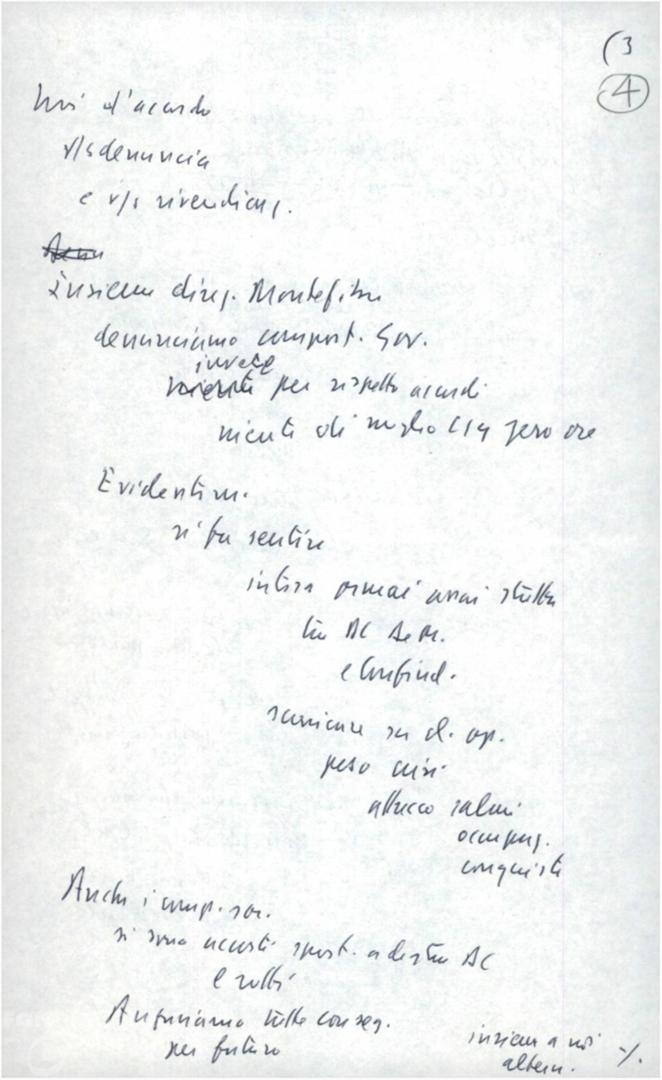 (3
4
Noi d'accordo
v/s denuncia
e v/s rivendicaz.
insieme direz. Montefibre
denunciamo comport. Gov.
invece
per rispetto accordi
niente di meglio CIG zero ore
Evidentem.
si fa sentire
intesa ormai assai stretta
tra DC
e Confind.
scaricare su cl. op.
peso crisi
attacco salari
occupaz.
conquiste
Anche i comp. soc.
si sono accorti spost. a destra DC
e
tutte conseg.
per futuro
insieme a noi
altern. ·/.